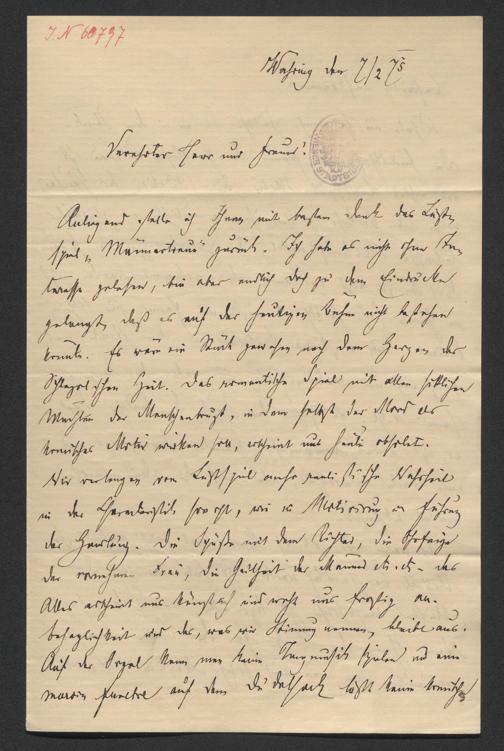 J.N 68797
Währing den 7/2 75
Verehrter Herr und Freund!
Anliegend stelle ich Ihnen mit bestem Dank das Lust-
spiel „Männertreue" zurück. Ich habe es nicht ohne In-
teresse gelesen, bin aber endlich doch zu dem Eindrucke
gelangt, daß es auf der heutigen Bühne nicht bestehen
könnte. Es wäre ein Stück gewesen nach dem Herzen der
Schlegel'schen Zeit. Das romantische Spiel mit allen sittlichen
Mächten der Menschenbrust, in dem selbst der Mord als
komisches Motiv wirken soll, erscheint uns heute obsolet.
Wir verlangen vom Lustspiel mehr realistische Wahrheit
in der Charakteristik sowohl, wie in Motivirung u Führung
der Handlung. Die Späße mit dem Richter, die Ohrfeige
der vornehmen Frau, die Geilheit des Mannes etc. etc. das
Alles erscheint uns künstlich und weht uns frostig an.
behaglichkeit und das, was wir Stimmung nennen, bleibt aus.
Auf der Orgel kann man keine Tanzmusik spielen und eine
marcia funebre auf dem Dudelsack läßt keine komische